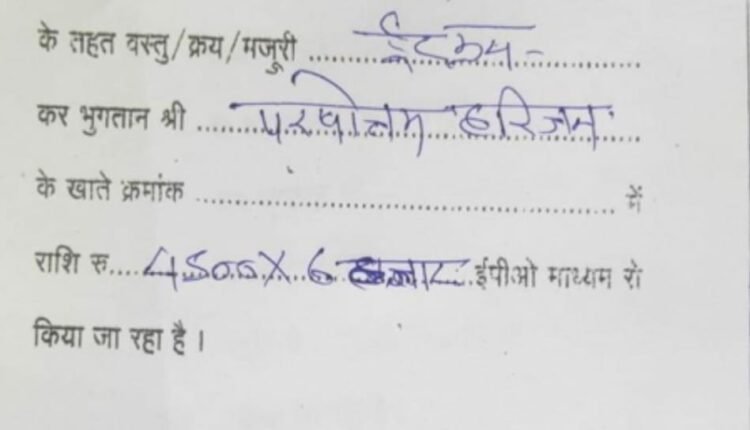 के तहत वस्तु/क्रय/मजुरी .......... ईट क्रय -
कर भुगतान श्री .......... परषोत्तम हरिजन
के खाते क्रमांक .......... में
राशि रु.... 4500 X 6 हजार ईपीओ माध्यम से
किया जा रहा है ।